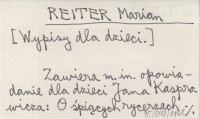 REITER Marian
[Wypisy dla dzieci.]
Zawiera m.in. opowia-
danie dla dzieci Jana Kaspro-
wicza: O śpiących rycerzach ·/.